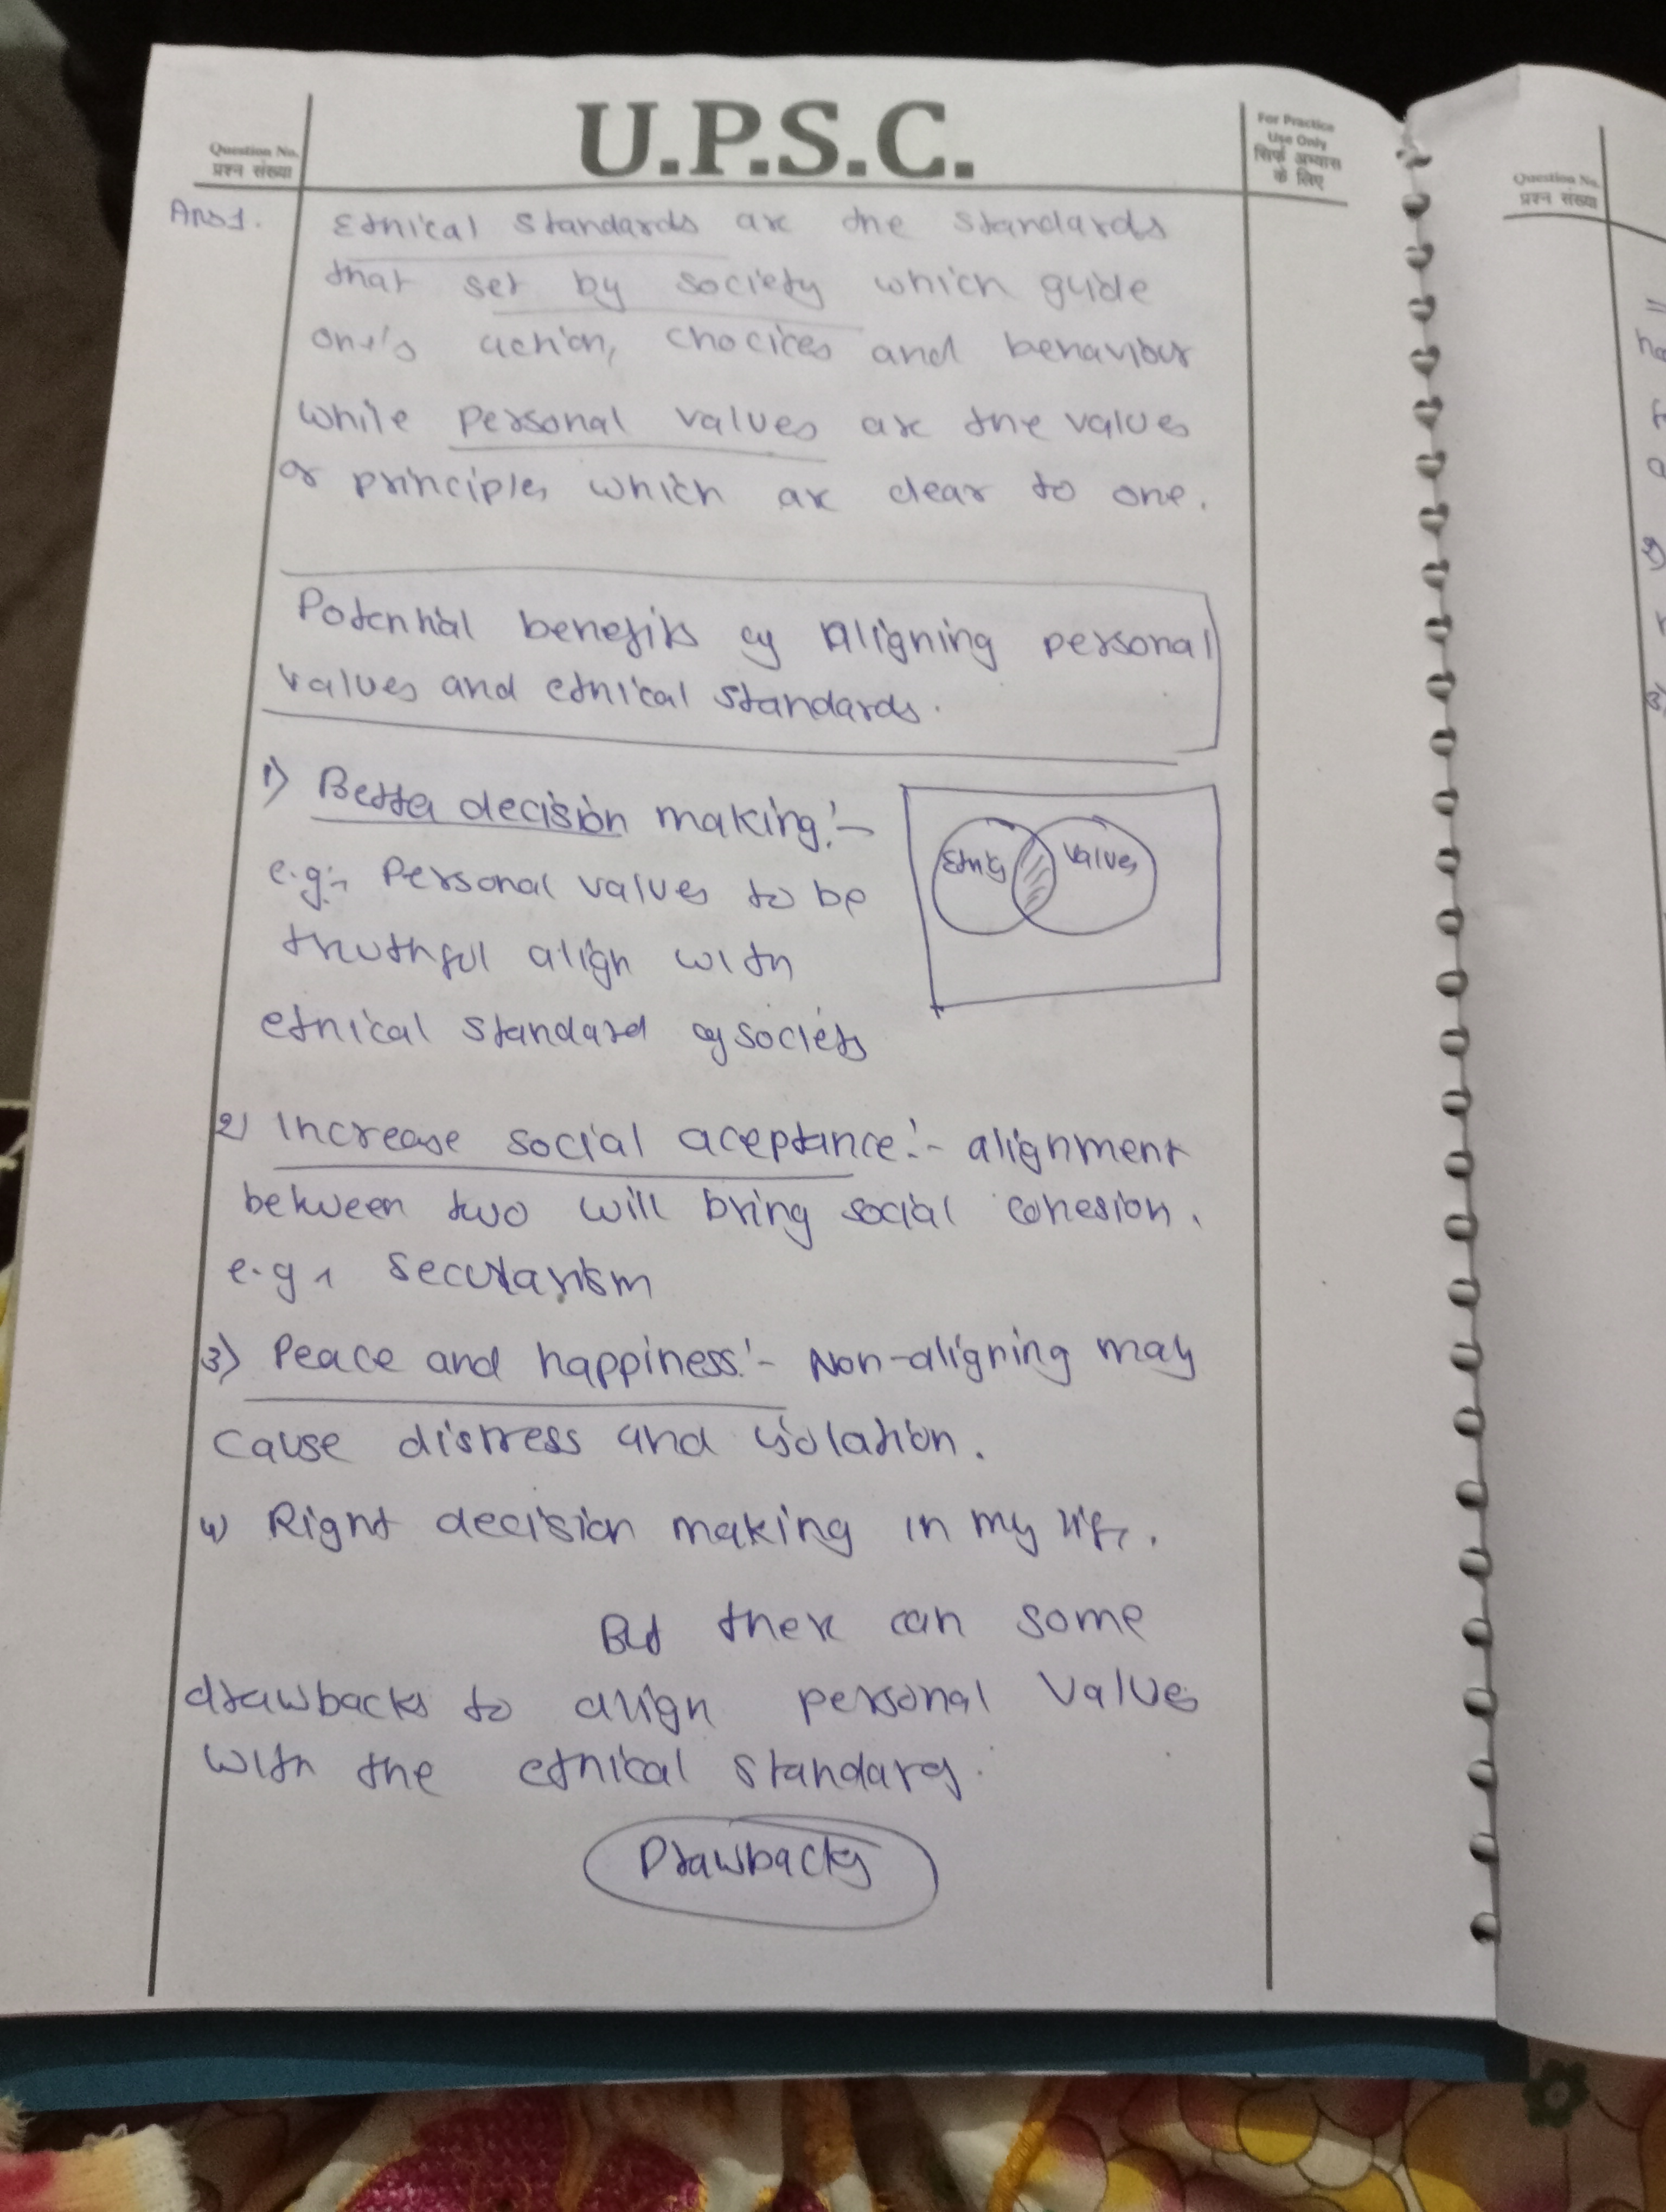 U.P.S.C.
Question No.
प्रश्न संख्या
For Practice
Use Only
सिर्फ अभ्यास
के लिए
Ans1.
Ethical standards are the standards
that set by society which guide
one's action, chocices and behaviour
while personal values are the values
or principles which are dear to one.
Potential benefits of Aligning personal
values and ethical standards.
1) Better decision making:-
e.g:- Personal values to be
truthful align with
ethical standard of society
Ethics
Values
2) Increase social aceptance:- alignment
between two will bring social cohesion.
e.g. secularism
3) Peace and happiness:- Non-aligning may
cause distress and isolation.
4) Right decision making in my life.
But there can some
drawbacks to align personal values
with the ethical standards.
Drawbacks
Question No.
प्रश्न संख्या